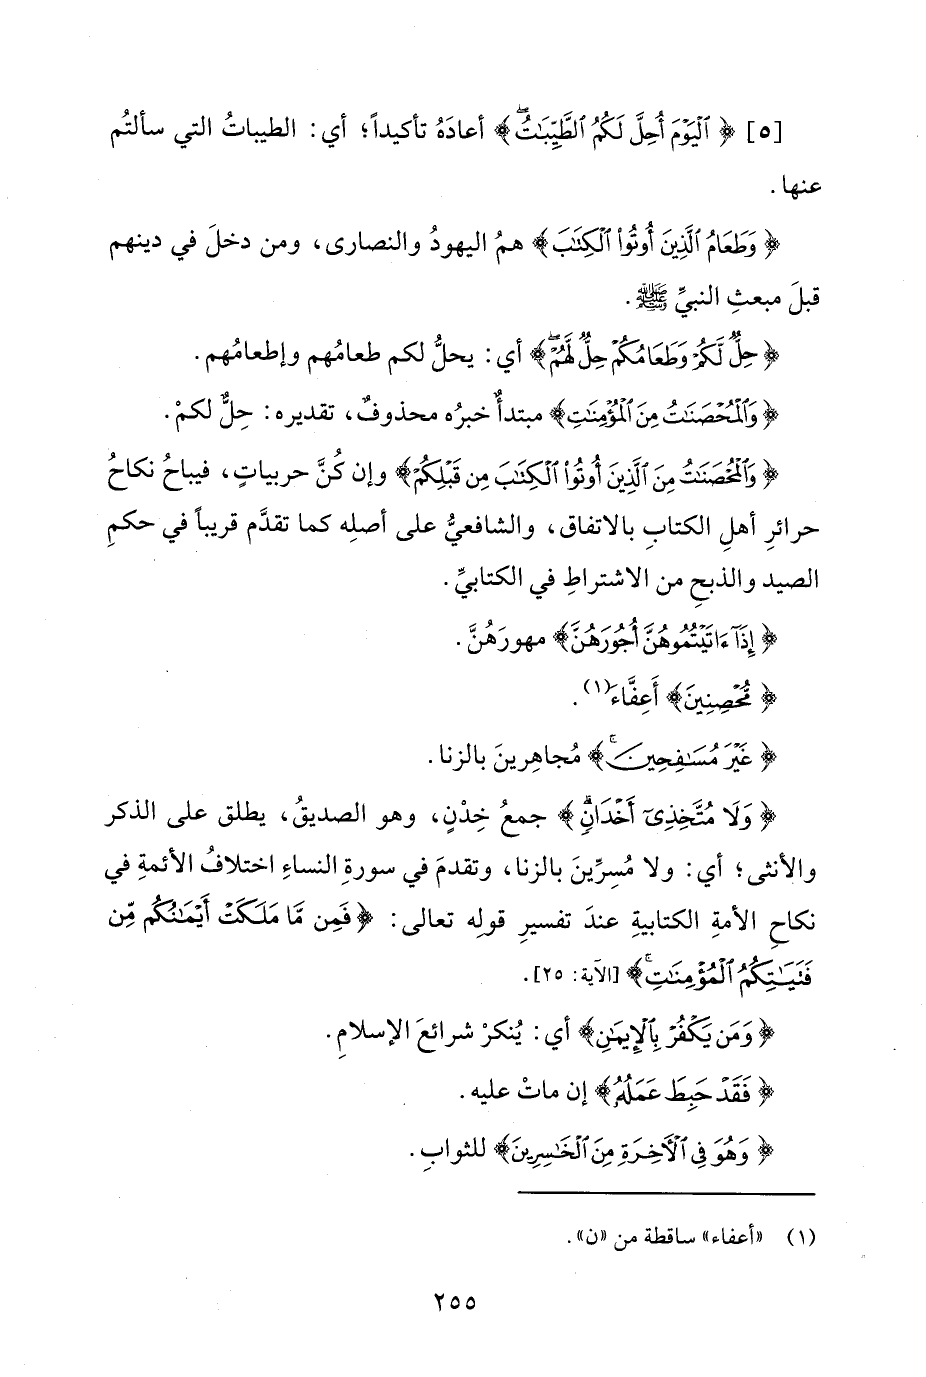 [٥] ﴿ٱلۡيَوۡمَ أُحِلَّ لَكُمُ ٱلطَّيِّبَٰتُۖ﴾ أعادَهُ تأكيداً؛ أي: الطيباتُ التي سألتُم
عنها.
﴿وَطَعَامُ ٱلَّذِينَ أُوتُواْ ٱلۡكِتَٰبَ﴾ همُ اليهودُ والنصارى، ومن دخلَ في دينهم
قبلَ مبعثِ النبيِّ ﷺ.
﴿حِلّٞ لَّكُمۡ وَطَعَامُكُمۡ حِلّٞ لَّهُمۡۖ﴾ أي: يحلُّ لكم طعامُهم وإطعامُهم.
﴿وَٱلۡمُحۡصَنَٰتُ مِنَ ٱلۡمُؤۡمِنَٰتِ﴾ مبتدأٌ خبرُه محذوفٌ، تقديره: حِلٌّ لكمْ.
﴿وَٱلۡمُحۡصَنَٰتُ مِنَ ٱلَّذِينَ أُوتُواْ ٱلۡكِتَٰبَ مِن قَبۡلِكُمۡ﴾ وإن كُنَّ حربياتٍ، فيباحُ نكاحُ
حرائرِ أهلِ الكتابِ بالاتفاق، والشافعيُّ على أصلِه كما تقدَّم قريباً في حكمِ
الصيد والذبحِ من الاشتراطِ في الكتابيِّ.
﴿إِذَآ ءَاتَيۡتُمُوهُنَّ أُجُورَهُنَّ﴾ مهورَهُنَّ.
﴿مُحۡصِنِينَ﴾ أَعِفَّاءَ(١).
﴿غَيۡرَ مُسَٰفِحِينَ﴾ مُجاهِرينَ بالزنا.
﴿وَلَا مُتَّخِذِيٓ أَخۡدَانٖۗ﴾ جمعُ خِدْنٍ، وهو الصديقُ، يطلق على الذكر
والأنثى؛ أي: ولا مُسِرِّينَ بالزنا، وتقدمَ في سورةِ النساءِ اختلافُ الأئمةِ في
نكاحِ الأمةِ الكتابيةِ عندَ تفسيرِ قولِه تعالى: ﴿فَمِن مَّا مَلَكَتۡ أَيۡمَٰنُكُم مِّن
فَتَيَٰتِكُمُ ٱلۡمُؤۡمِنَٰتِۚ﴾ [الآية: ٢٥].
﴿وَمَن يَكۡفُرۡ بِٱلۡإِيمَٰنِ﴾ أي: يُنكرْ شرائعَ الإسلامِ.
﴿فَقَدۡ حَبِطَ عَمَلُهُۥ﴾ إن ماتْ عليه.
﴿وَهُوَ فِي ٱلۡأٓخِرَةِ مِنَ ٱلۡخَٰسِرِينَ﴾ للثوابِ.
(١) «أعفاء» ساقطة من «ن».
٢٥٥